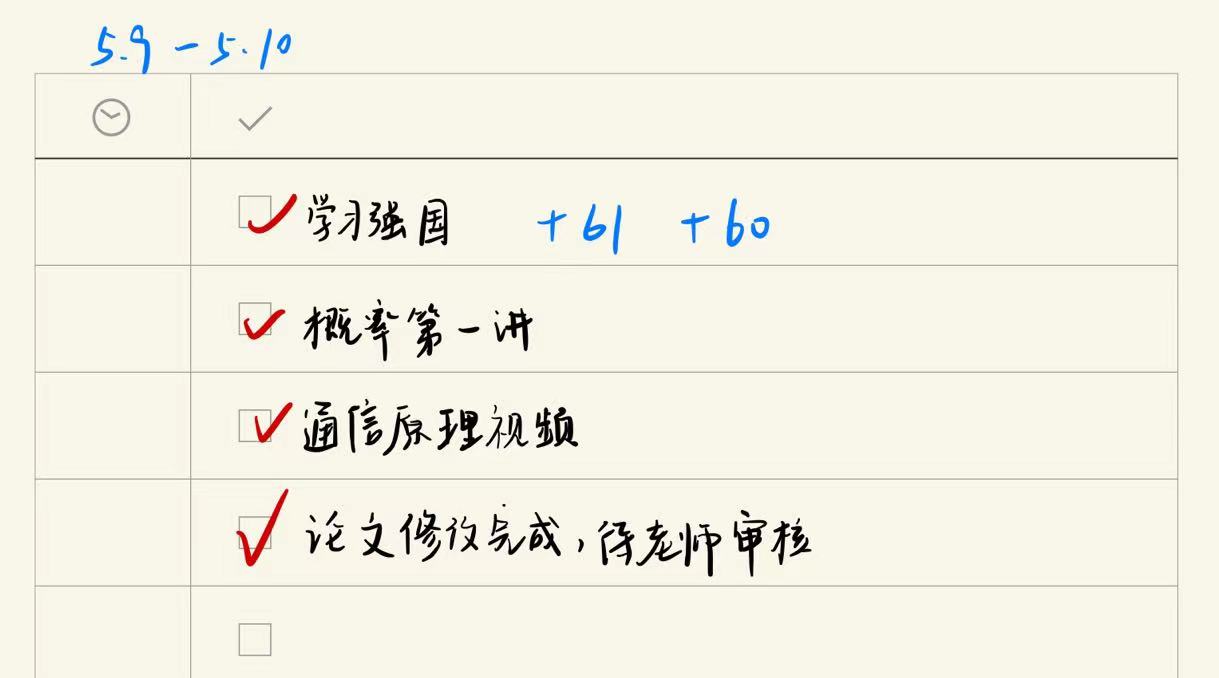 5.9 - 5.10
学习强国 +61 +60
概率第一讲
通信原理视频
论文修改完成，待老师审核